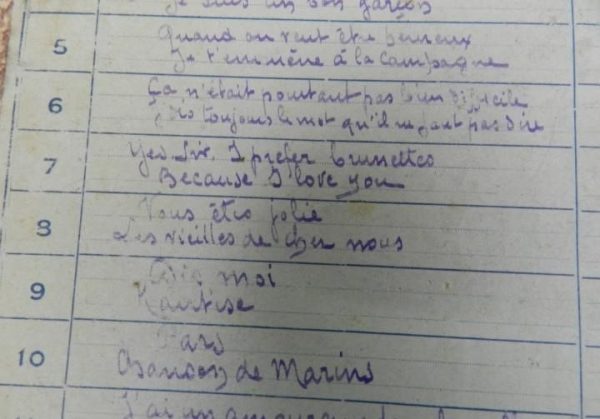 Je suis un bon garçon
5
Quand on veut être heureux
Je t'emmène à la campagne
6
Ça n'était pourtant pas bien difficile
toujours le mot qu'il ne faut pas dire
7
Yes Sir. I prefer brunettes
Because I love you
8
Vous êtes jolie
Les vieilles de chez nous
9
Dis moi
Hantise
10
Pars
Chanson de Marins
J'ai un amour